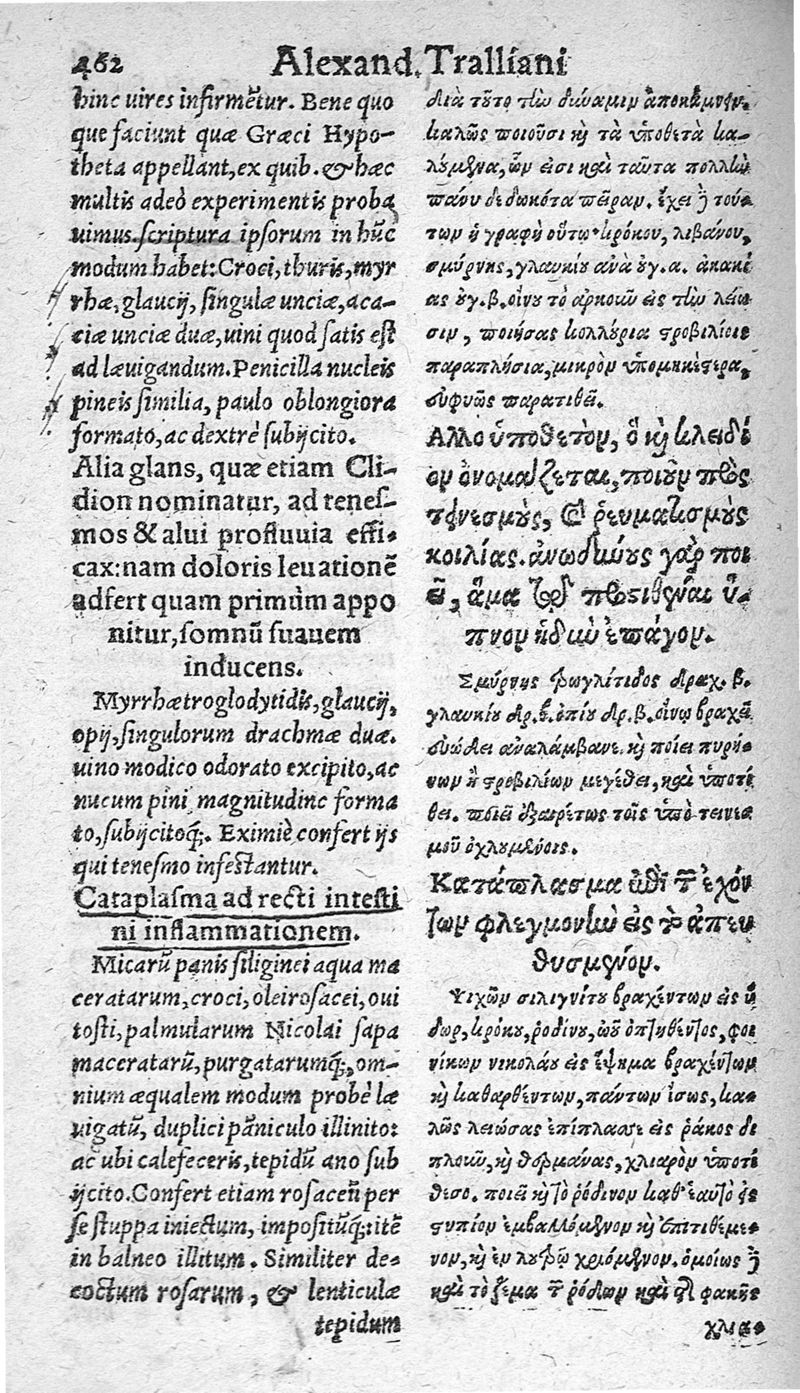 462 Alexand. Tralliani
hinc uires infirmẽtur. Bene quo
que faciunt quæ Græci Hypo-
theta appellant, ex quib. & hæc
multis adeò experimentis proba
uimus. scriptura ipsorum in hũc
modum habet: Croci, thuris, myr
rhæ, glaucij, singulæ unciæ, aca-
ciæ unciæ duæ, uini quod satis est
ad læuigandum. Penicilla nucleis
pineis similia, paulo oblongiora
formato, ac dextrè subijcito.
Alia glans, quæ etiam Cli-
dion nominatur, ad tenes-
mos & alui profluuia effi-
cax: nam doloris leuationẽ
adfert quam primùm appo
nitur, somnũ suauem
inducens.
Myrrhæ troglodytidis, glaucij,
opij, singulorum drachmæ duæ.
uino modico odorato excipito, ac
nucum pini magnitudine forma
to, subijcitoq́;. Eximiè confert ijs
qui tenesmo infestantur.
Cataplasma ad recti intesti
ni inflammationem.
Micarũ panis siliginei aqua ma
ceratarum, croci, olei rosacei, oui
tosti, palmularum Nicolai sapa
maceratarũ, purgatarumq́;, om-
nium æqualem modum probè læ
uigatũ, duplici pãniculo illinito:
ac ubi calefeceris, tepidũ ano sub
ijcito. Confert etiam rosaceũ per
se stuppa iniectum, impositũq́;: itẽ
in balneo illitum. Similiter de-
coctum rosarum, & lenticulæ
tepidum
διὰ τοῦτο τὴν δύναμιν ἀποκάμνειν.
καλῶς ποιοῦσι καὶ τὰ ὑποθετὰ κα-
λύμενα, ὧν εἰσι καὶ ταῦτα πολλὴν
πάνυ δεδωκότα πεῖραν. ἔχει δὲ τού-
των ἡ γραφὴ οὕτω· κρόκου, λιβάνου,
σμύρνης, γλαυκίου ἀνὰ ουγ. α. ἀκακί
ας ουγ. β. οἴνου τὸ ἀρκοῦν εἰς τὴν λείω-
σιν, ποιήσας κολλύρια στροβιλίοις
παραπλήσια, μικρὸν ὑπομηκέστερα,
εὐφυῶς παρατιθεῖ.
Αλλο ὑποθετὸν, ὃ καὶ κλειδί
ον ὀνομάζεται, ποιοῦν πρὸς
τεινεσμοὺς, καὶ ῥευματισμοὺς
κοιλίας. ἀνωδύνους γὰρ ποι
εῖ, ἅμα τῷ προστιθέναι ὕ-
πνον ἡδὺν ἐπάγον.
Σμύρνης τρωγλίτιδος δραχ. β.
γλαυκίου δρ. β. ὀπίου δρ. β. οἴνῳ βραχεῖ
εὐώδει ἀναλάμβανε. καὶ ποίει πυρή-
νων ἢ στροβιλίων μεγέθει, καὶ ὑποτί
θει. ποιεῖ ἐξαιρέτως τοῖς ὑπὸ τεινεσ
μοῦ ὀχλουμένοις.
Κατάπλασμα ἐπὶ τῶν ἐχόν
των φλεγμονὴν εἰς τὸ ἀπευ
θυσμένον.
Ψιχῶν σιλιγνίτου βραχέντων εἰς ὕ
δωρ, κρόκου, ῥοδίνου, ὠοῦ ὀπτηθέντος, φοι
νίκων νικολάου εἰς ἕψημα βραχέντων
καὶ καθαρθέντων, πάντων ἴσως, κα-
λῶς λειώσας ἐπίπλασσε εἰς ῥάκος δι
πλοῦν, καὶ θερμάνας, χλιαρὸν ὑποτί
θεσο. ποιεῖ καὶ τὸ ῥόδινον καθ' ἑαυτὸ εἰς
στυπίον ἐμβαλλόμενον καὶ ἐπιτιθέμε-
νον, καὶ ἐν λουτρῷ χριόμενον. ὁμοίως δὲ
καὶ τὸ ζέμα τῶν ῥόδων καὶ τῆς φακῆς
χλια-